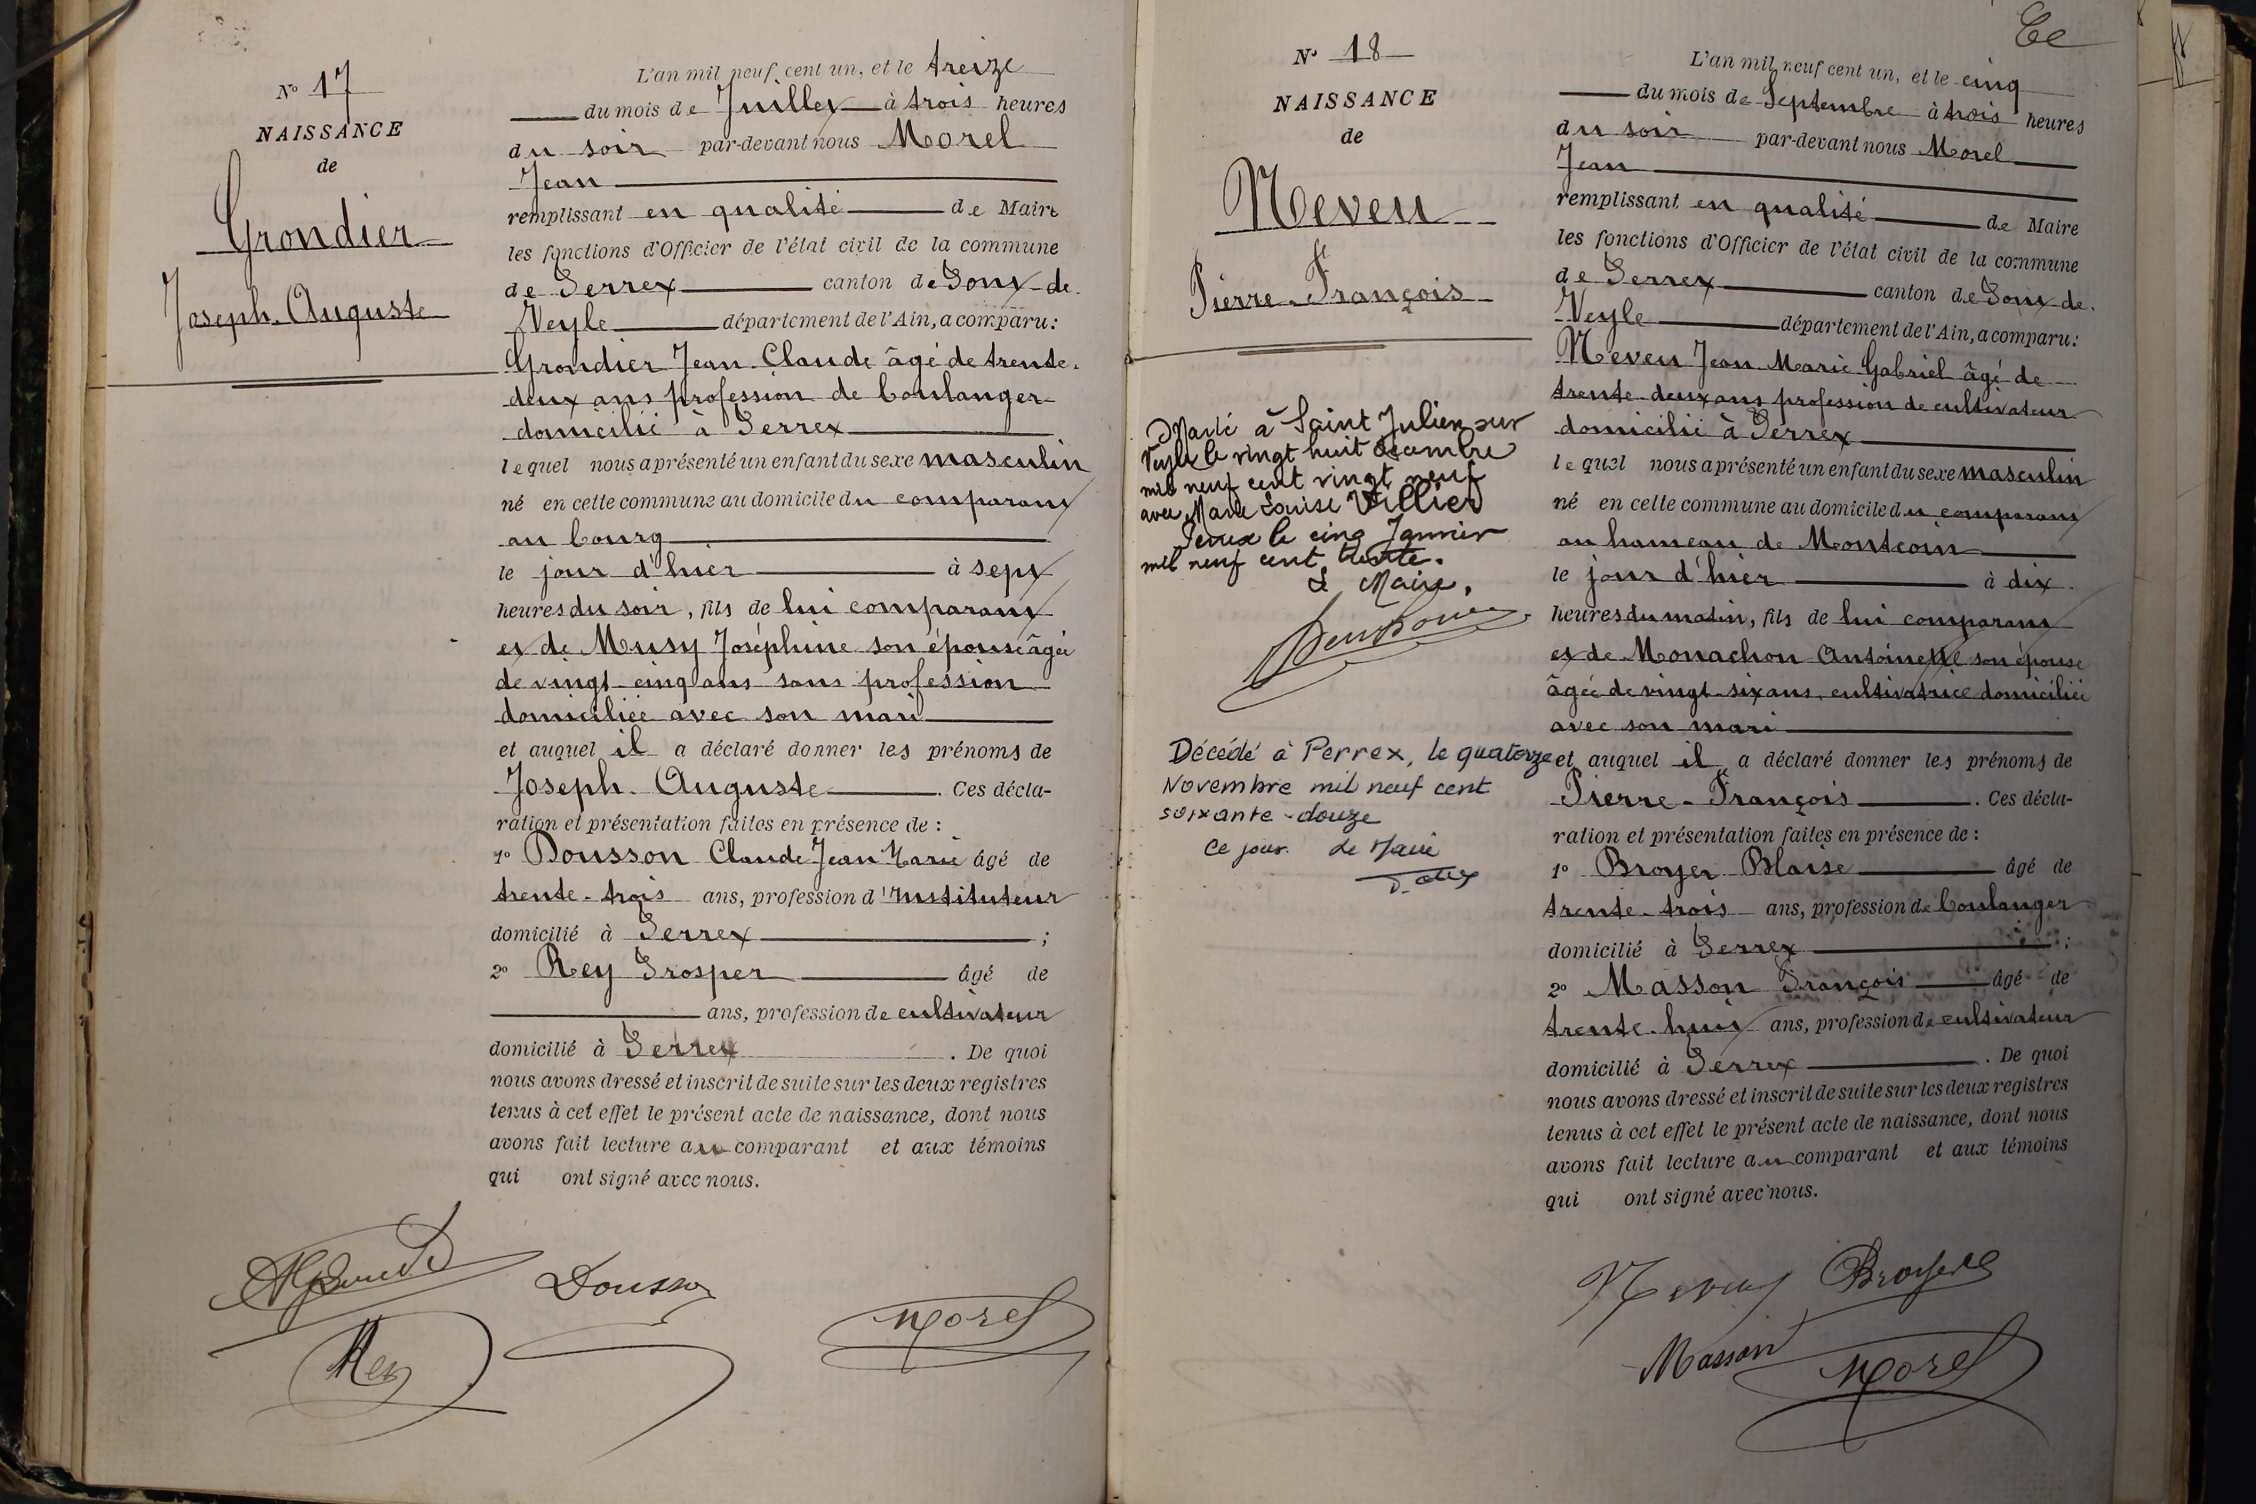 N° 17
NAISSANCE
de
Grondier
Joseph-Auguste
L'an mil neuf cent un, et le treize
du mois de Juillet à trois heures
du soir par-devant nous Morel
Jean
remplissant en qualité de Maire
les fonctions d'Officier de l'état civil de la commune
de Perrex canton de Pont-de-
Veyle département de l'Ain, a comparu:
Grondier Jean-Claude âgé de trente-
deux ans profession de boulanger
domicilié à Perrex
lequel nous a présenté un enfant du sexe masculin
né en cette commune au domicile du comparant
au bourg
le jour d'hier à sept
heures du soir, fils de lui comparant
et de Musy Joséphine son épouse âgée
de vingt-cinq ans sans profession
domiciliée avec son mari
et auquel il a déclaré donner les prénoms de
Joseph-Auguste. Ces décla-
ration et présentation faites en présence de :
1° Dousson Claude Jean Marie âgé de
trente-trois ans, profession d'Instituteur
domicilié à Perrex ;
2° Rey Prosper âgé de
ans, profession de cultivateur
domicilié à Perrex. De quoi
nous avons dressé et inscrit de suite sur les deux registres
tenus à cet effet le présent acte de naissance, dont nous
avons fait lecture au comparant et aux témoins
qui ont signé avec nous.
Dousson
Morel
Rey
Ee
N° 18
NAISSANCE
de
Neveu
Pierre-François
Marié à Saint Julien sur
Veyle le vingt huit décembre
mil neuf cent vingt neuf
avec Marie Louise Villier
Perrex le cinq Janvier
mil neuf cent trente.
Le Maire,
Décédé à Perrex, le quatorze
Novembre mil neuf cent
soixante-douze
Ce jour. Le Maire
L'an mil neuf cent un, et le cinq
du mois de Septembre à trois heures
du soir par-devant nous Morel
Jean
remplissant en qualité de Maire
les fonctions d'Officier de l'état civil de la commune
de Perrex canton de Pont-de-
Veyle département de l'Ain, a comparu:
Neveu Jean-Marie-Gabriel âgé de
trente-deux ans profession de cultivateur
domicilié à Perrex
lequel nous a présenté un enfant du sexe masculin
né en cette commune au domicile du comparant
au hameau de Montcoin
le jour d'hier à dix
heures du matin, fils de lui comparant
et de Monachon Antoinette son épouse
âgée de vingt-six ans, cultivatrice domiciliée
avec son mari
et auquel il a déclaré donner les prénoms de
Pierre-François. Ces décla-
ration et présentation faites en présence de :
1° Broyer Blaise âgé de
trente-trois ans, profession de boulanger
domicilié à Perrex ;
2° Masson François âgé de
trente-huit ans, profession de cultivateur
domicilié à Perrex. De quoi
nous avons dressé et inscrit de suite sur les deux registres
tenus à cet effet le présent acte de naissance, dont nous
avons fait lecture au comparant et aux témoins
qui ont signé avec nous.
Neveu Broyer
Masson Morel